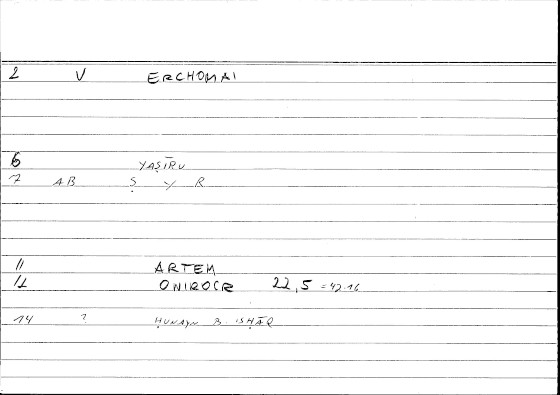 2 V ERCHOMAI
6 YAṢĪRU
7 AB Ṣ Y R
11 ARTEM
12 ONIROCR 22,5 = 42.16
14 ? ḤUNAYN B. ISḤĀQ